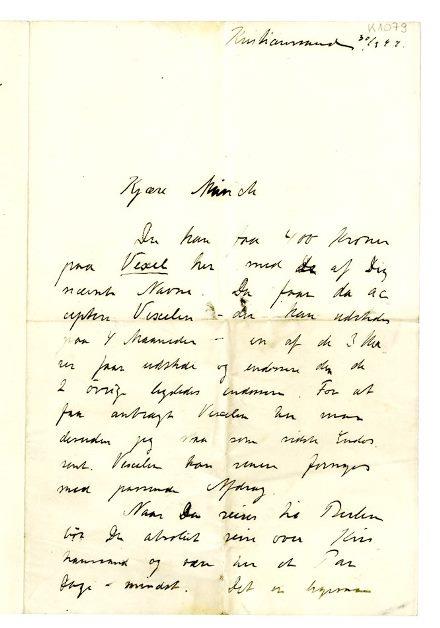 K 1079
Kristianssand 30/3 97.
Kjære Munch
Du kan faa 400 Kroner
paa Vexel her med de af Dig
nævnte Navne. Du faar da ac
ceptere Vexelen - den kan udstedes
paa 4 Maaneder - en af de 3 Her
rer faar udstede og endossere den de
2 övrige ligeledes endossere. For at
faa anbragt Vexelen her maa
desuden jeg staa som sidste Endos
sent. Vexelen kan senere fornyes
med passende Afdrag.
Naar Du reiser til Berlin
bör Du absolut reise over Kris
tianssand og være her et Par
Dage - mindst. Det er